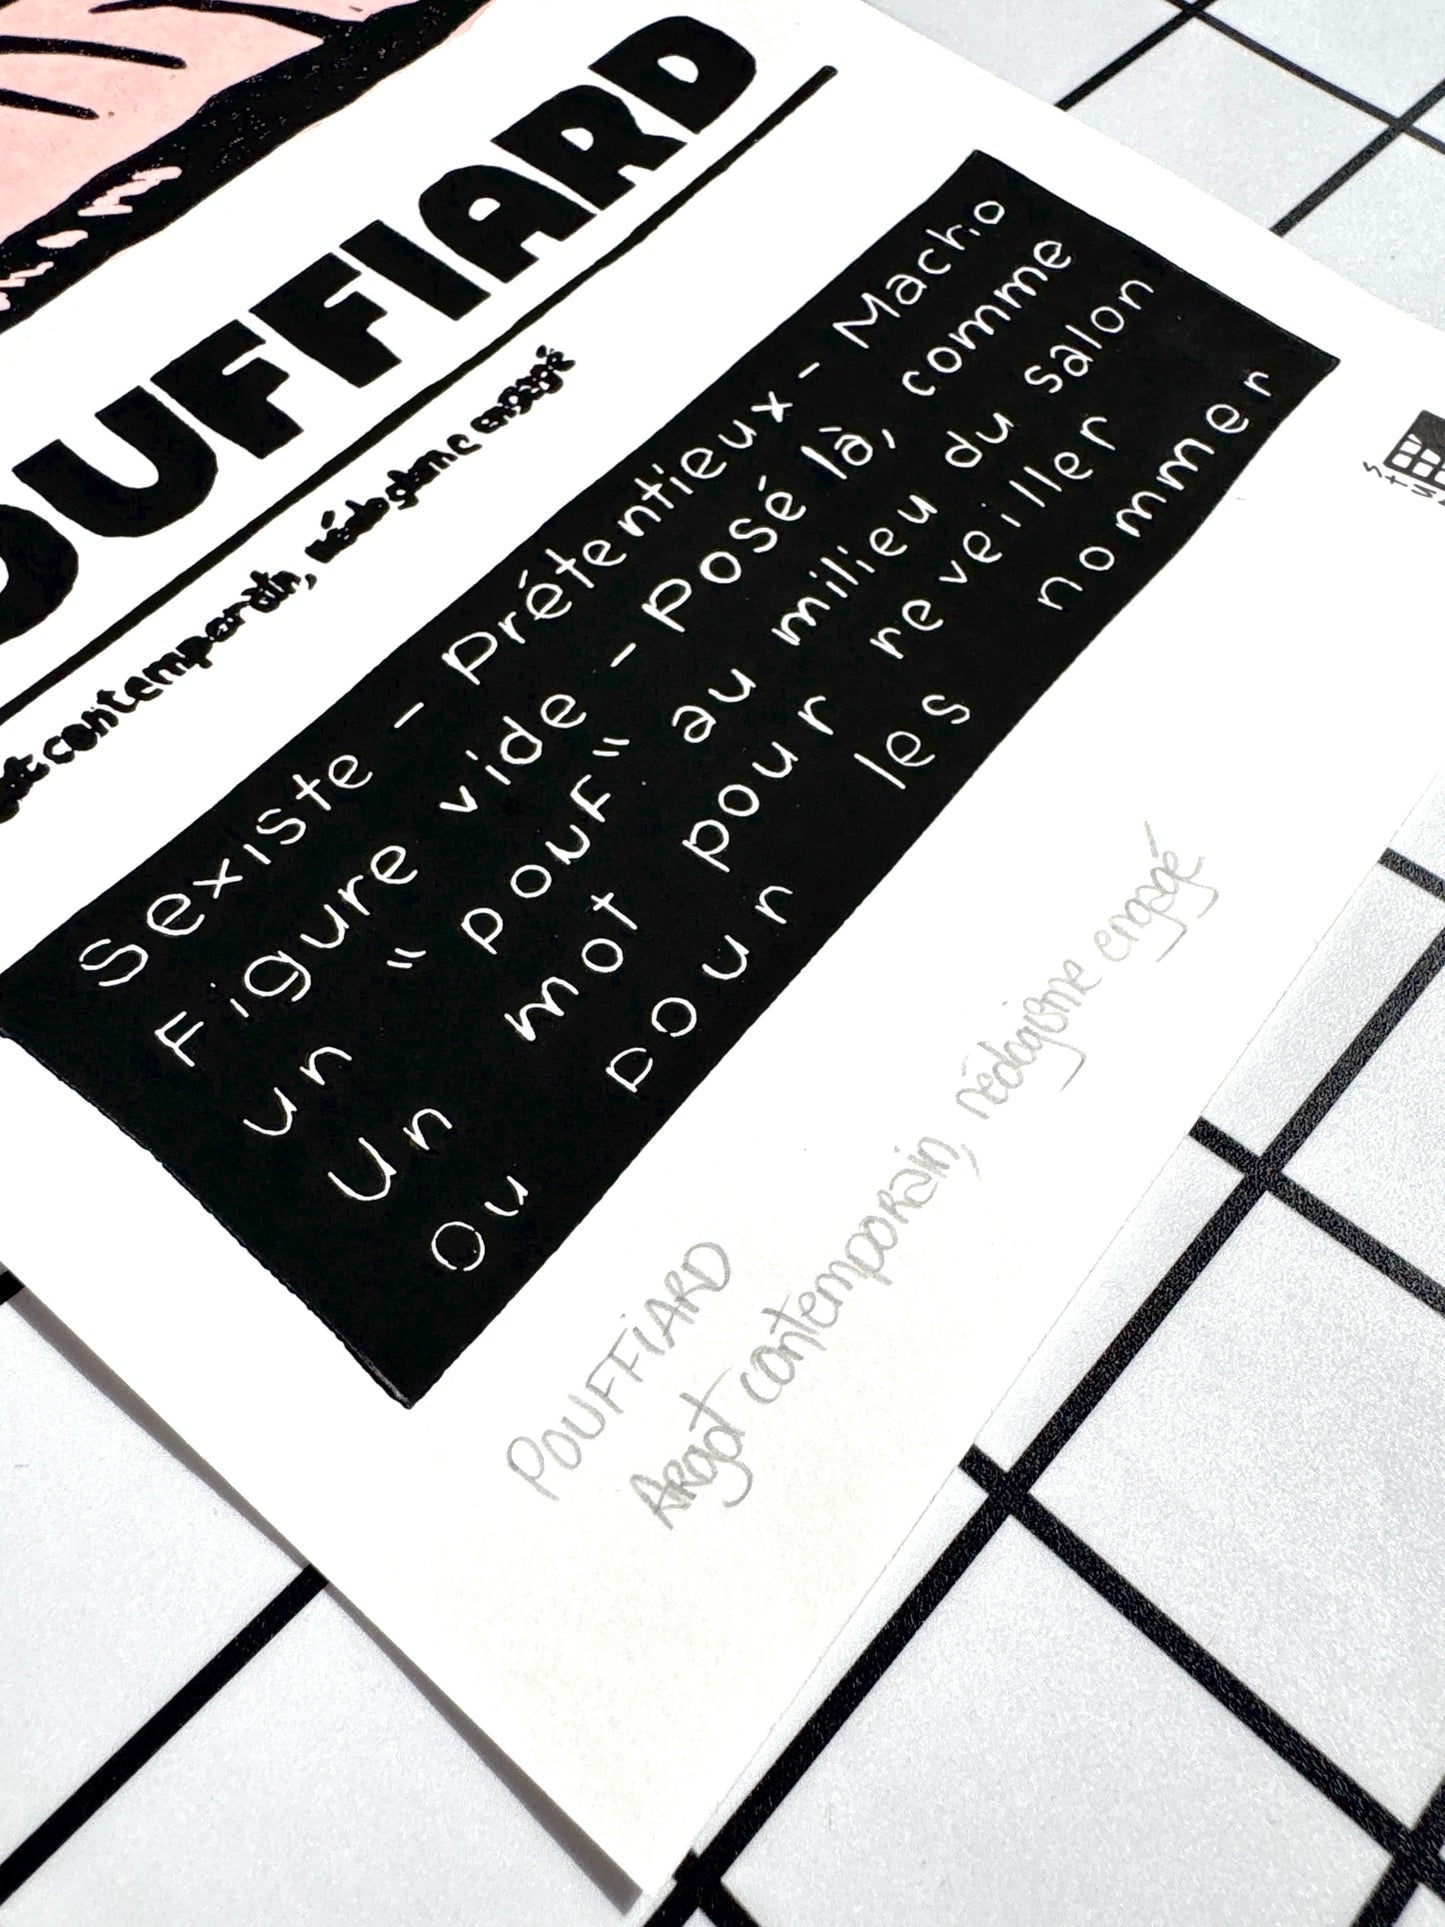 OUFFIARD
ot contemporain, néologisme engagé
Sexiste - Prétentieux - Macho
Figure vide - Posé là, comme
un " pouf " au milieu du salon
Un mot pour reveiller
Ou poun les nommer
POUFFiARD
Argot contemporain, néologisme engagé